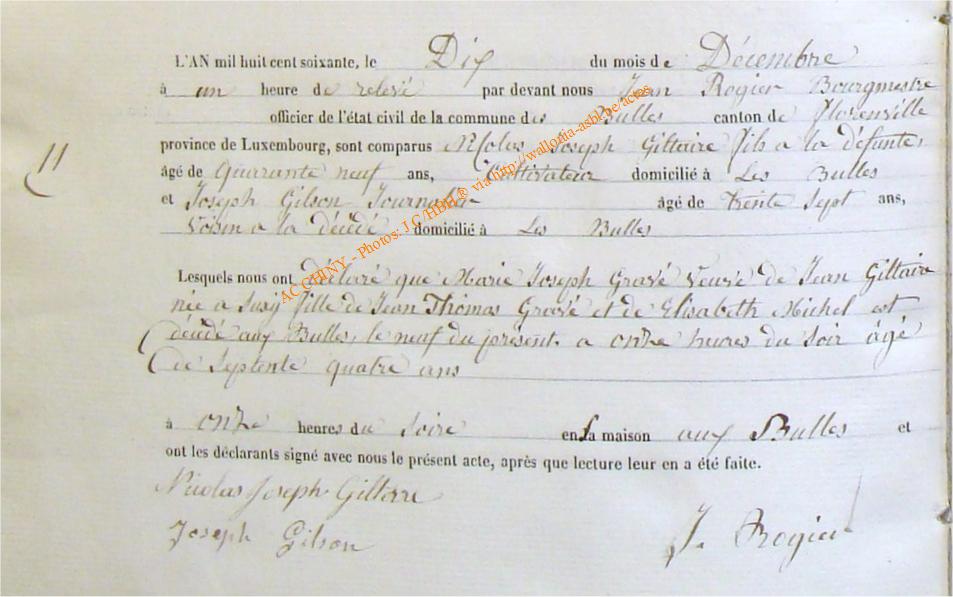 L'AN mil huit cent soixante, le Dix du mois de Décembre
à un heure de relevé par devant nous Jean Rogier Bourgmestre
officier de l'état civil de la commune des Bulles canton de Florenville
11
province de Luxembourg, sont comparus Nicolas Joseph Giltaire fils a la défunte,
âgé de Quarante neuf ans, Cultivateur domicilié à Les Bulles
et Joseph Gilson Journalier âgé de trente sept ans,
Voisin a la décédé domicilié à Les Bulles
ACCHINY - Photos: J C /HBH ® via http://wallonia-asbl.be/actes
Lesquels nous ont déclaré que Marie Joseph Gravé veuve de Jean Giltaire
née a Suxy fille de Jean Thomas Gravé et de Elisabeth Michel est
décédé aux Bulles, le neuf du présent a onze heures du soir âgé
de Septente quatre ans
à onze heures du soire en sa maison aux Bulles et
ont les déclarants signé avec nous le présent acte, après que lecture leur en a été faite.
Nicolas Joseph Gilterre
Joseph Gilson J. Rogier